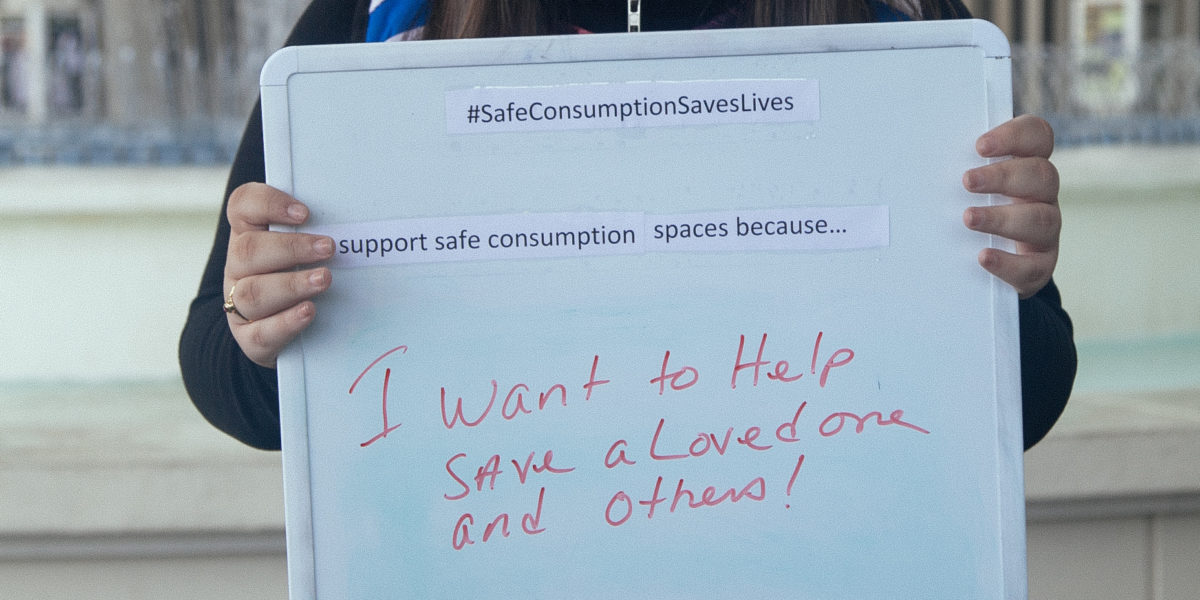 #SafeConsumptionSavesLives
support safe consumption spaces because...
I Want to Help
SAve a Loved one
and others!